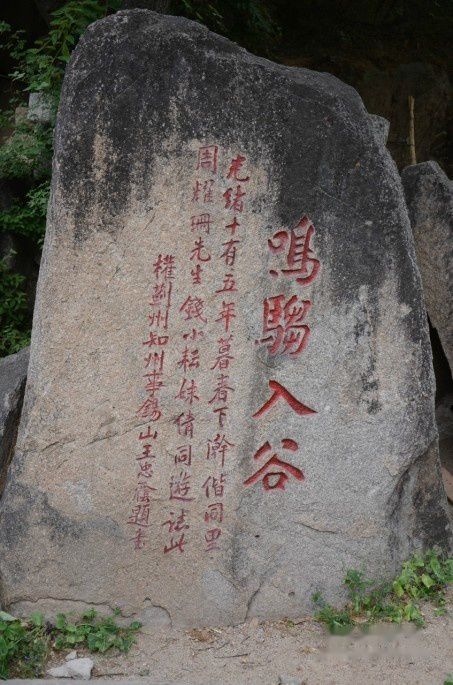 鳴騶入谷
光绪十有五年暮春下澣偕同里
周耀珊先生錢小耘妹倩同遊誌此
權薊州知州事錫山王忠蔭題书